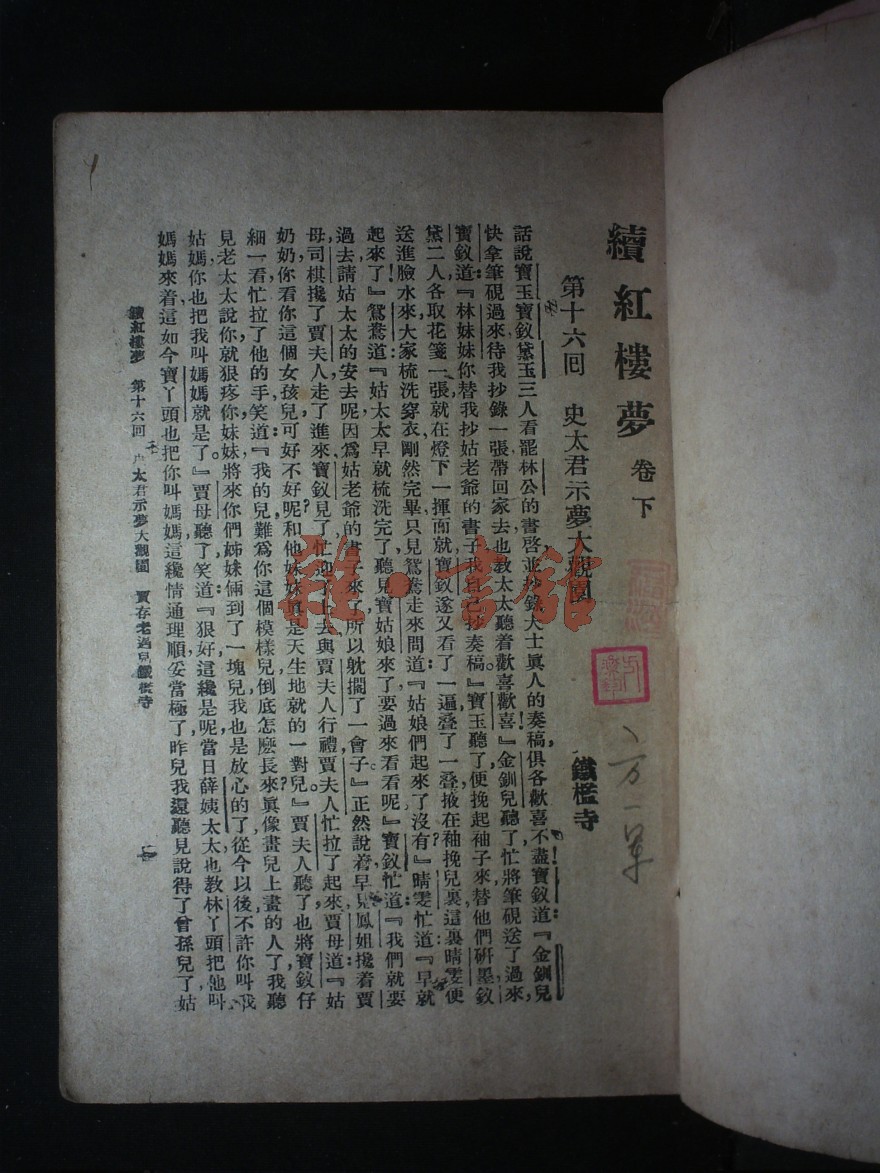 續紅樓夢 卷下
第十六回 史太君示夢大觀園 鐵檻寺
話說寶玉寶釵黛玉三人看罷林公的書啓並抄錄大士眞人的奏稿俱各歡喜不盡寶釵道：『金釧兒
快拿筆硯過來待我抄錄一張帶回家去也教太太聽着歡喜歡喜！』金釧兒聽了忙將筆硯送了過來，
寶釵道：『林妹妹你替我抄姑老爺的書子我自己抄奏稿。』寶玉聽了便挽起袖子來替他們研墨釵
黛二人各取花箋一張就在燈下一揮而就寶釵遂又看了一遍叠了一叠掖在袖挽兒裏這裏晴雯便
送進臉水來大家梳洗穿衣剛然完畢只見鴛鴦走來問道：『姑娘們起來了沒有？』晴雯忙道：『早就
起來了！』鴛鴦道：『姑太太早就梳洗完了聽見寶姑娘來了要過來看看呢。』寶釵忙道：『我們就要
過去請姑太太的安去呢因爲姑老爺的書子來了所以躭擱了一會子。』正然說着早見鳳姐攙着賈
母司棋攙了賈夫人走了進來寶釵見了忙迎了上去與賈夫人行禮賈夫人忙拉了起來賈母道：『姑
奶奶你看你這個女孩兒可好不好呢和他妹妹眞是天生地就的一對兒。』賈夫人聽了也將寶釵仔
細一看忙拉了他的手笑道：『我的兒難爲你這個模樣兒倒底怎麽長來眞像畫兒上畫的人了我聽
見老太太說你就狠疼你妹妹將來你們姊妹倆到了一塊兒我也是放心的了從今以後不許你叫我
姑媽你也把我叫媽媽就是了。』賈母聽了笑道：『狠好這纔是呢當日薛姨太太也教林丫頭把他叫
媽媽來着這如今寶丫頭也把你叫媽媽這纔情通理順妥當極了昨兒我還聽見說得了曾孫兒了姑
續紅樓夢 第十六回 史太君示夢大觀園 賈存老過兒鐵檻寺
一
雅·書館